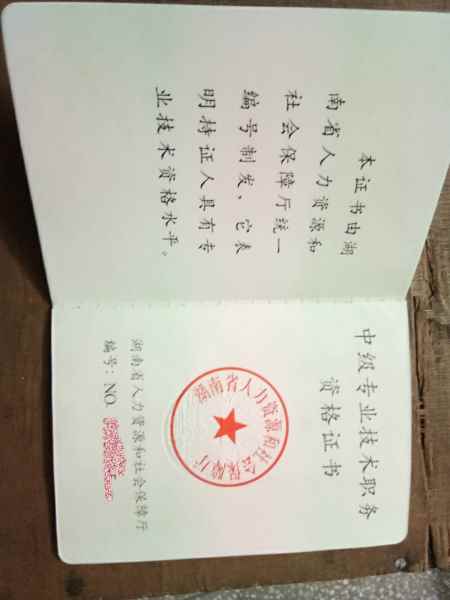 本证书由湖
南省人力资源和
社会保障厅统一
编号制发，它表
明持证人具有专
业技术资格水平。
中级专业技术职务
资格证书
湖南省人力资源和社会保障厅
湖南省人力资源和社会保障厅
编号：NO.